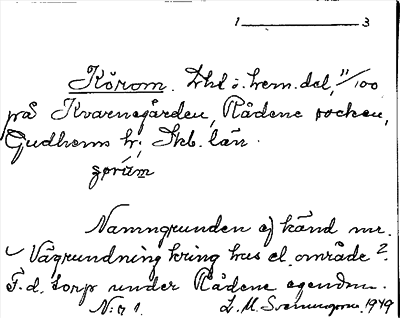 1 ———— 3
Körom. Lht o. hem. del, 11/100
på Kvarnegården, Rådene socken,
Gudhems hr; Skb. län.
Namngrunden ej känd mr.
✓ Vägrundning kring hus el. område?
F. d. torp under Rådene egendm.
N:r 1. L. M. Svenungsson. 1949